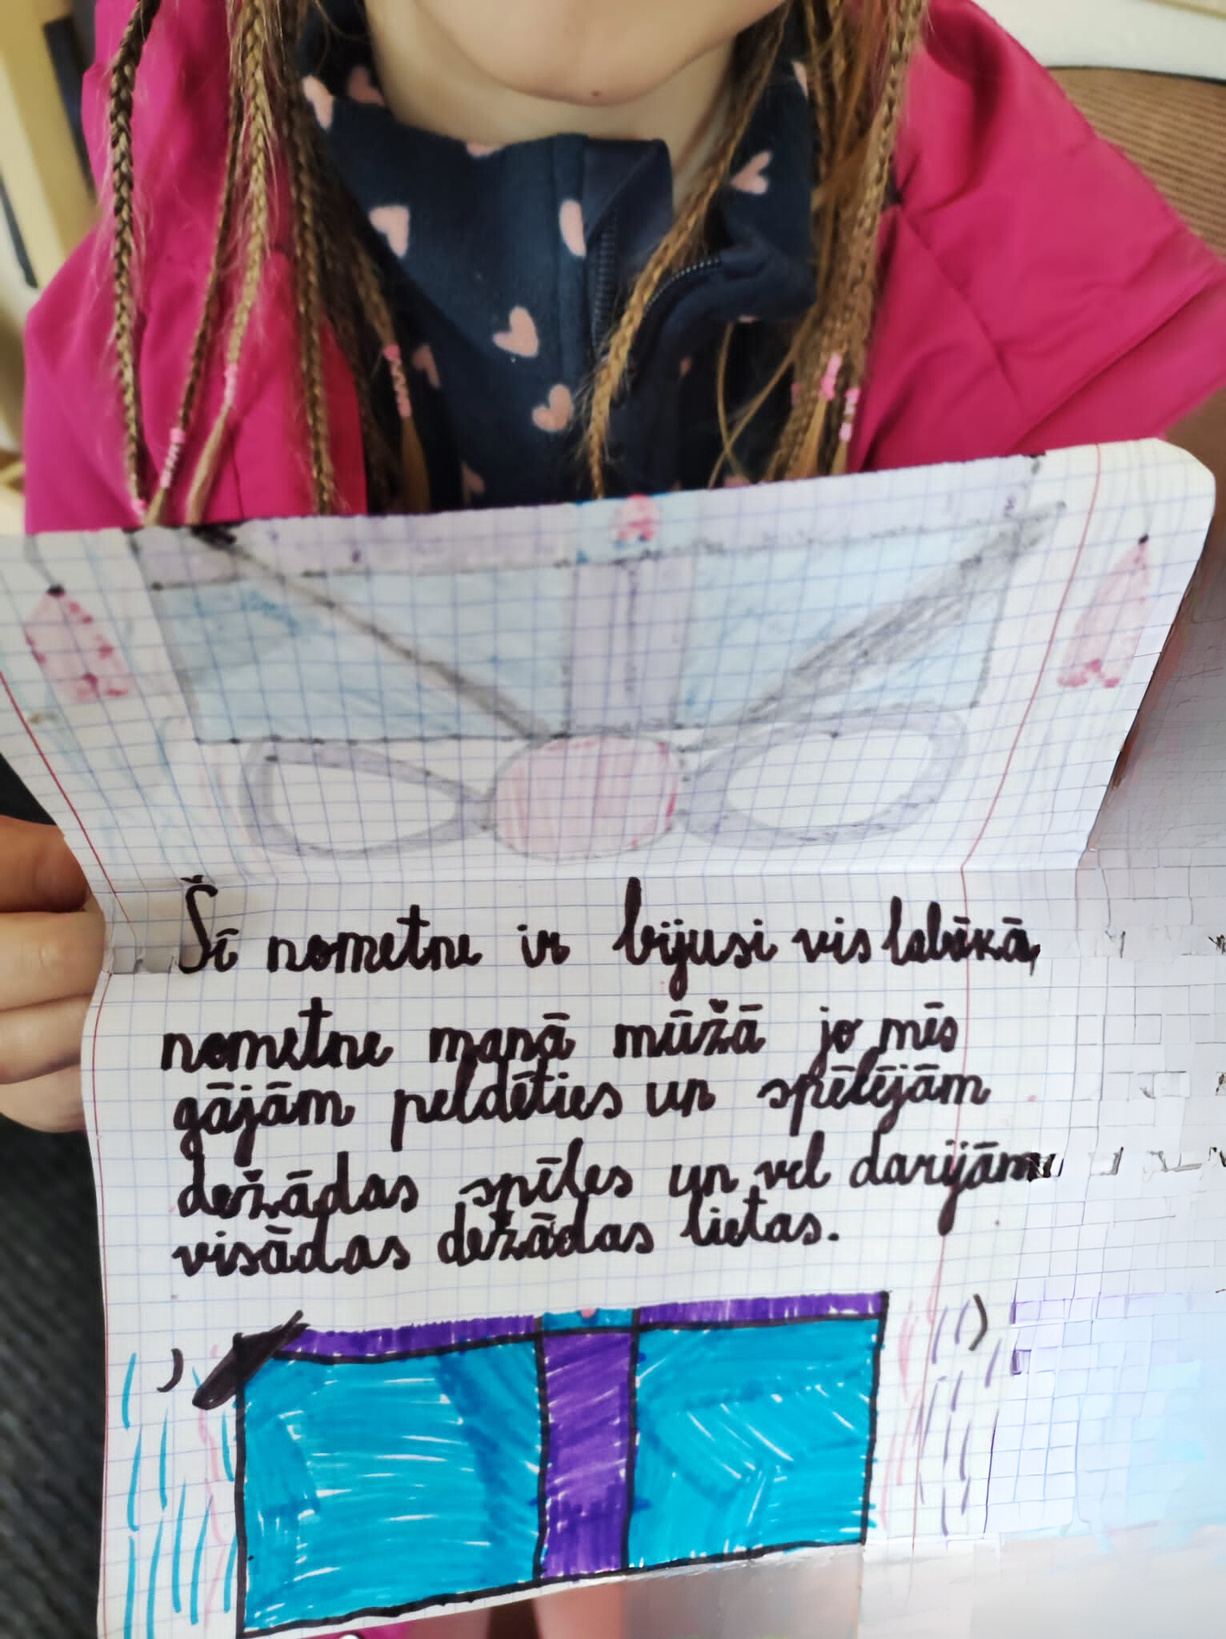 Šī nometne ir bijusi vis labākā
nometne manā mūžā jo mēs
gājām peldēties un spēlējām
dežādas spēles un vēl darijām
visādas dežādas lietas.